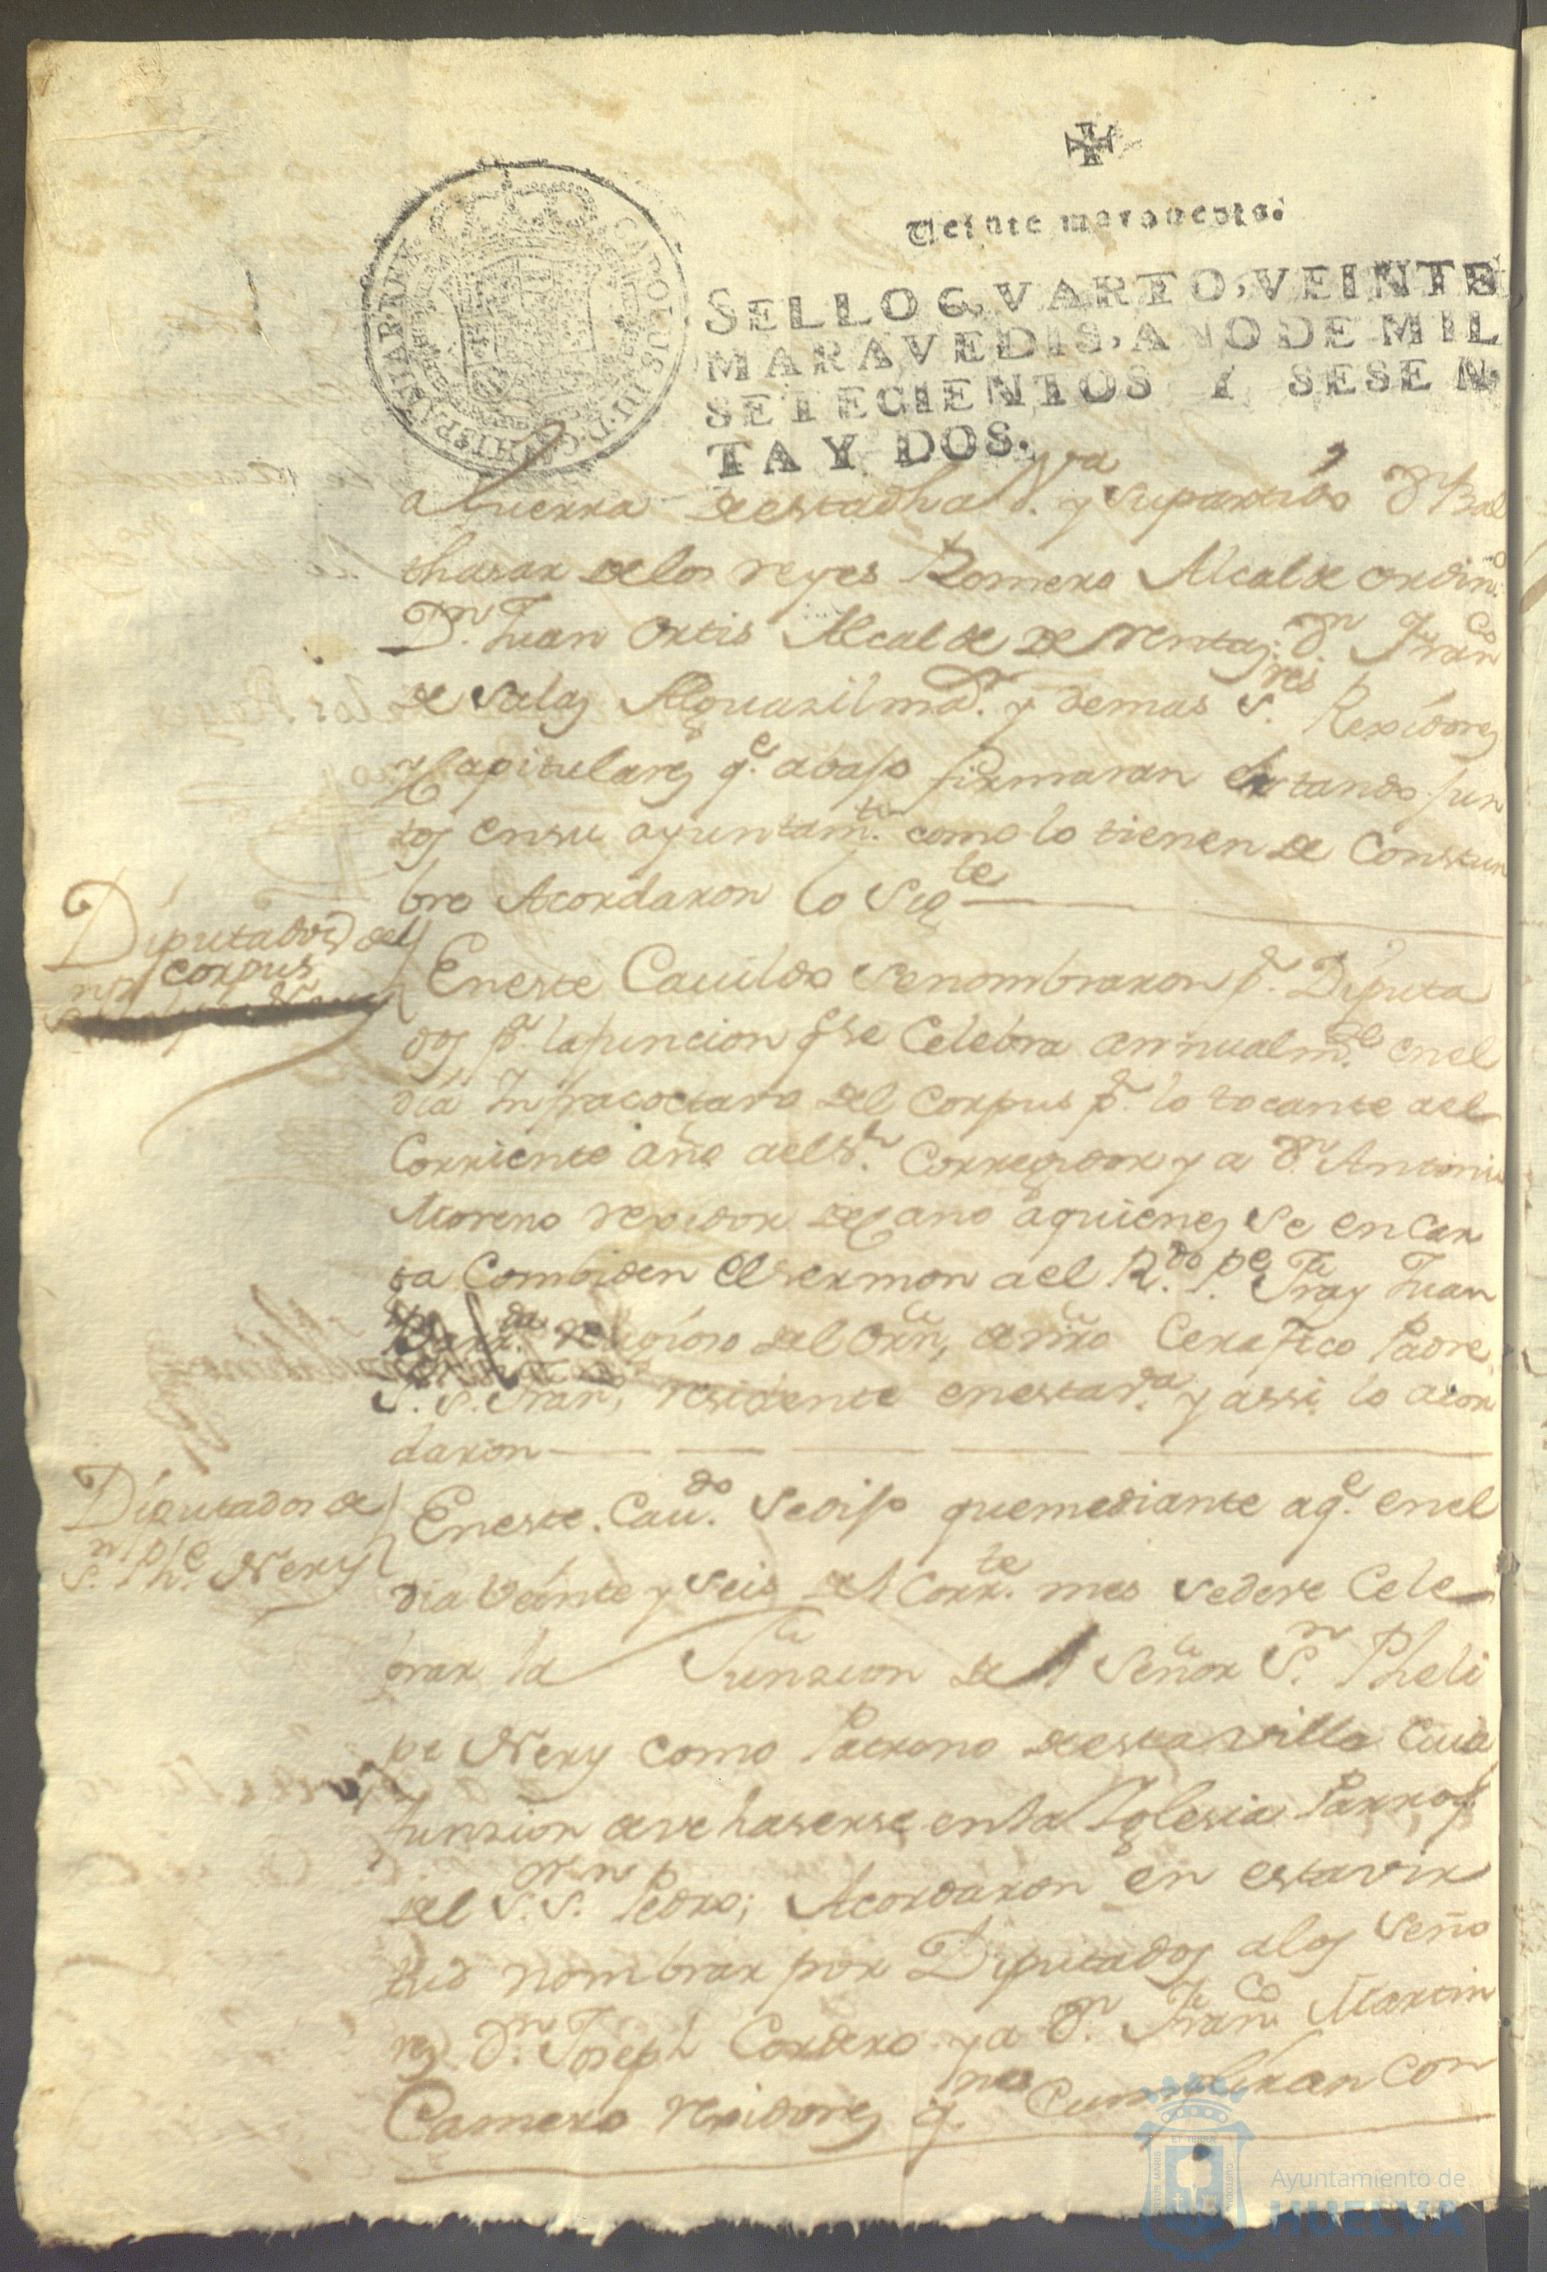 Veinte maravedis.
SELLO QVARTO, VEINTE
MARAVEDIS, AÑO DE MIL
SETECIENTOS Y SESEN-
TA Y DOS.
CAROLUS III D G HISPANIAR REX
a Guerra de esta dha V.ª y su partido Dn Bal
thasar de los reyes Romero Alcalde ordin.º
Dn Juan Ortis Alcalde de rentas Dn Franco
de Salas Alguasil mr. y demas Sres Rexidores
y Capitulares qe abajo firmaran Estando jun
tos en su ayuntamto como lo tienen de Constum
bre Acordaron lo Sigte
Diputados del
corpus
En este Cauildo se nombraron pr Diputa
dos pa la funcion qe se Celebra annualmte en el
dia Infraoctavo del Corpus pr lo tocante ael
Corriente año ael Sr Corregidor y a Dn Antonio
Moreno rexidor decano a quienes se encar
ga Combiden el sermon ael Rdo Pe Fray Juan
religioso del Orn, de nro Cerafico Padre
S. S. Fran, residente en esta Va y assi lo acor
daron
Diputados de
Sn Phe Nery
En este Caudo se dijo que mediante a qe en el
dia veinte y seis del Corrte mes se deve Cele
brar la Funzion del Señor Sn Pheli
pe Nery como Patrono de esta villa Cuia
funzion deve haserse en la Iglesia Parroql
del Sr Sn Pedro; Acordaron en esta vir
tud nombrar por Diputados a los Seño
res Dn Joseph Cordero y a Dn Franco Martin
Camero rexidores qnes Cumpliran con
Ayuntamiento de
HUELVA